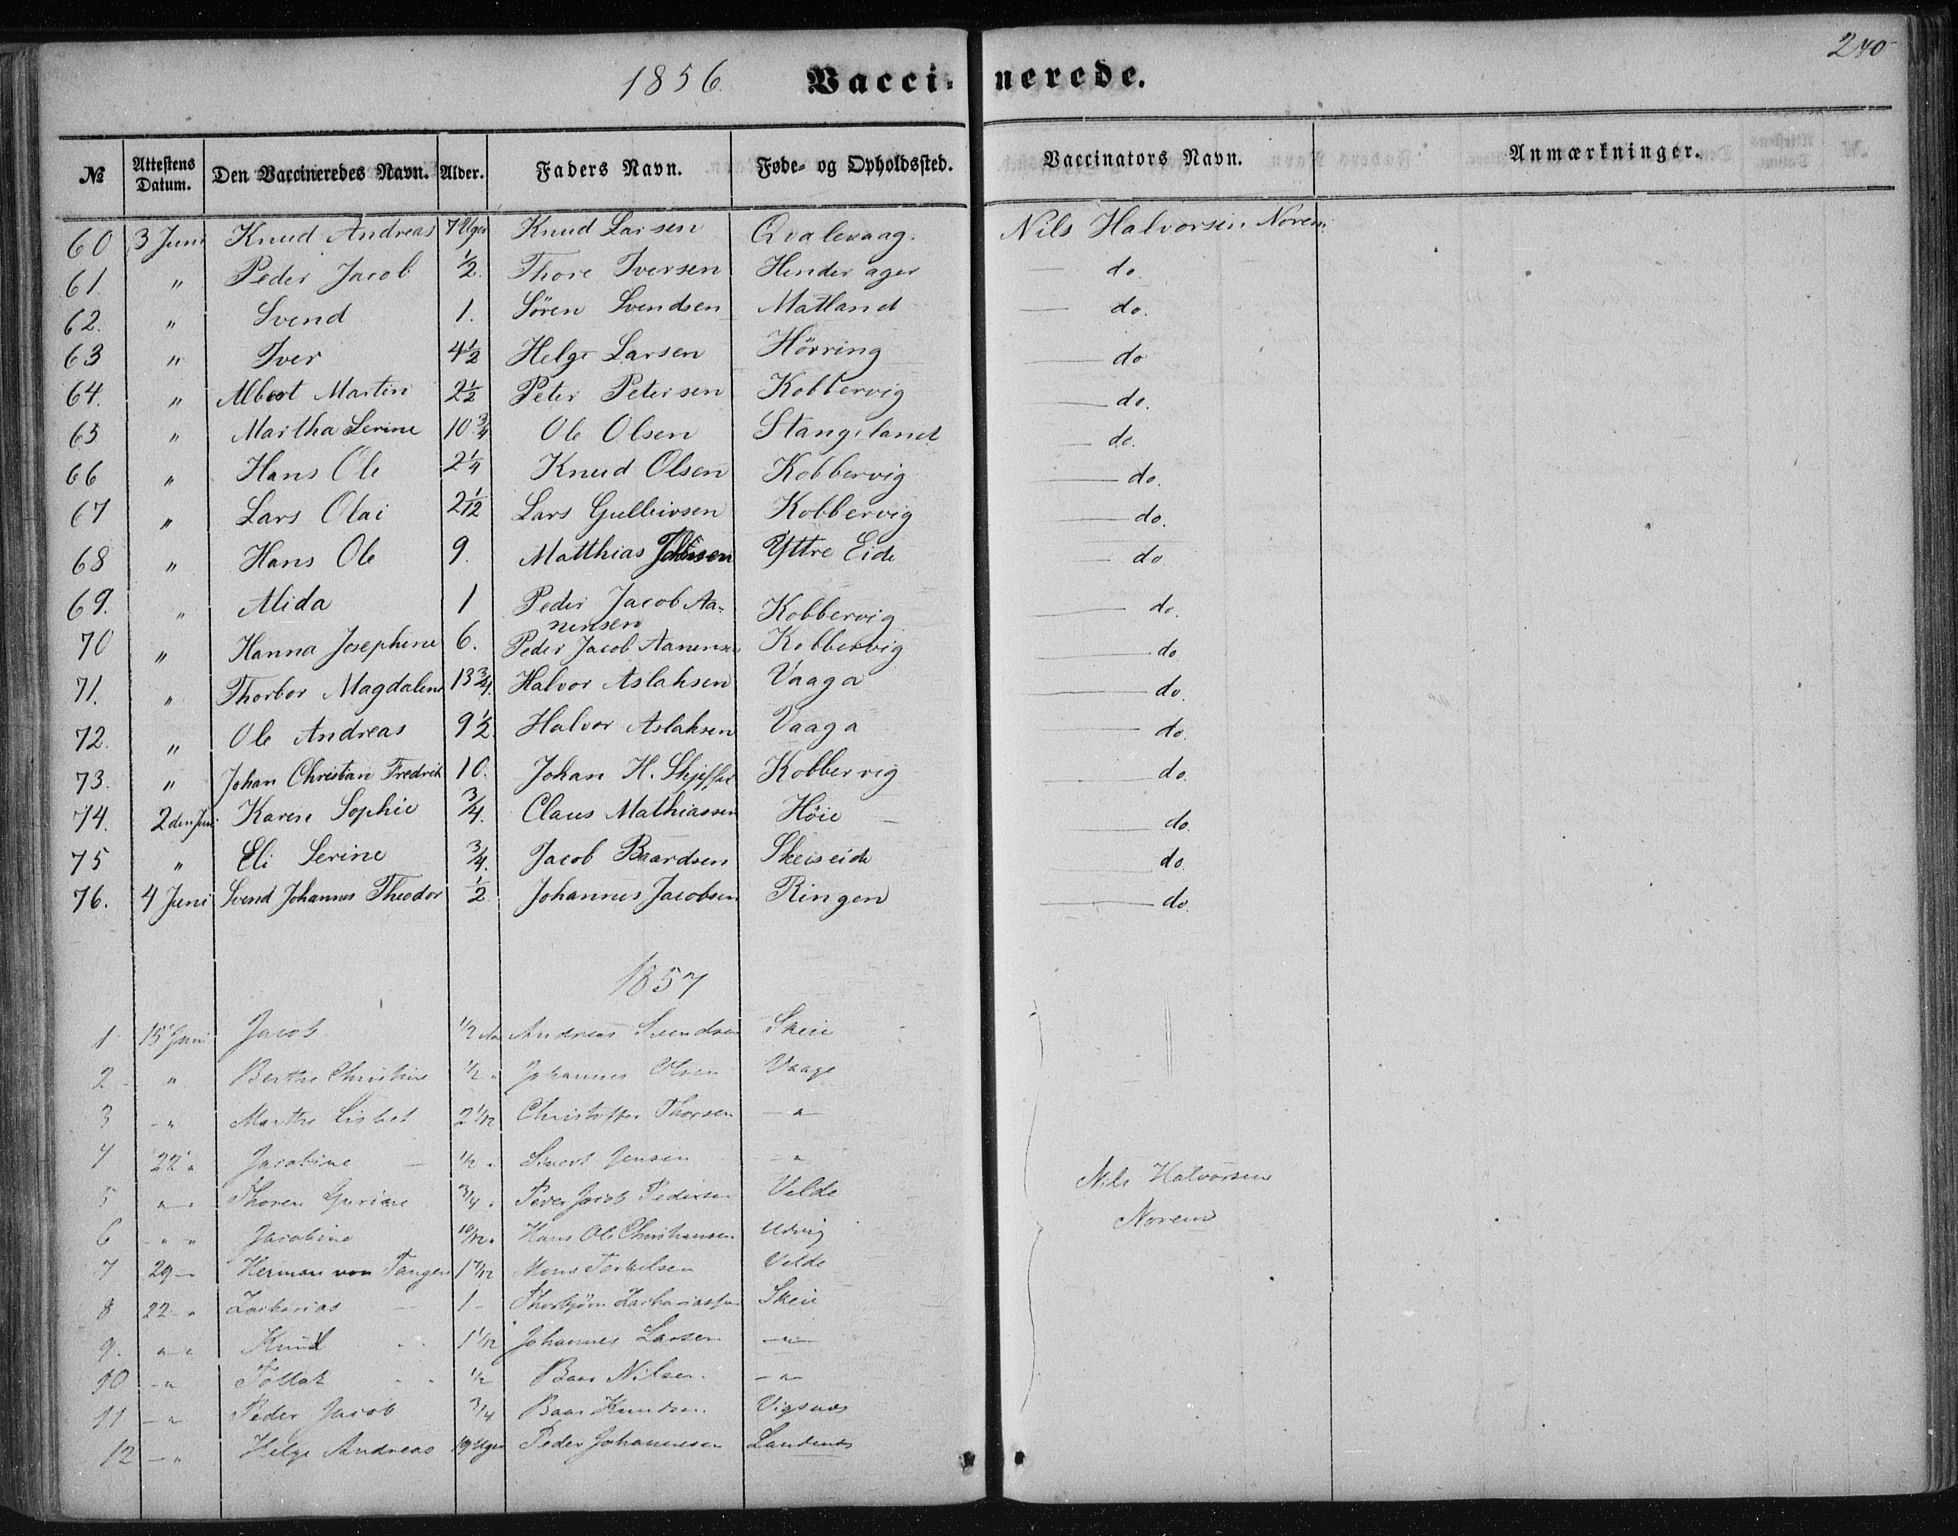 240
1856 Vaccinerede.
№ Attestens Datum. Den Vaccineredes Navn. Alder. Faders Navn. Føde- og Opholdssted. Vaccinators Navn. Anmærkninger.
60 3 Juni Knud Andreas 7 Uger Knud Larsen Qvalevaag. Nils Halvorsen Norem
61. " Peder Jacob ½ Thore Iversen Hinderager do.
62. " Svend 1. Sören Svendsen Matland do.
63 " Iver 4½ Helge Larsen Hörring do
64. " Albert Martin 2½ Peter Petersen Kobbervig do.
65 " Martha Serine 10 ¾ Ole Olsen Stangeland do.
66 " Hans Ole 2¼ Knud Olsen Kobbervig do.
67 " Lars Olai 2 1/12 Lars Gulleivsen Kobbervig do.
68 " Hans Ole 9. Matthias Yttre Eide do
69. " Alida 1 Peder Jacob Aa-
nensen Kobbervig do.
70 " Hanna Josephine 6. Peder Jacob Aanensen Kobbervig do
71. " Thorbor Magdalene 13 ¾. Halvor Aslaksen Vaaga do.
72. " Ole Andreas 9½ Halvor Aslaksen Vaaga do.
73. " Johan Christian Fredrik 10. Johan H. Kobbervig do.
74. 2den Juni Karen Sophie ¾. Claus Mathiassen Höie do.
75 " Eli Serine ¾. Jacob Baardsen Skeiseide do.
76. 4 Juni Svend Johannes Theodor ½ Johannes Jacobsen Ringen do.
1857
1 15 Juni Jacob ½ Aar Andreas Svendsen Skeie
2 " Berthe Christine ½ " Johannes Olsen Vaage
3 " Marthe Lisbet 2 1/12 Christoffer Thorsen "
4 22 " Jacobine ½ " Sivert Jensen "
5 " " Thoren Guriane ¾ " Peder Jacob Pedersen Velde Nils Halvorsen
6 " " Jacobine 10/12 " Hans Ole Christiansen Udvig Norem
7 29 Herman von Tangen 1 7/12 Mons Torkelsen Velde
8 22 " Zacharias 1 Thorbjørn Zachariassen Skeie
9. " " Knud 1 1/12 Johannes Larsen "
10 " Tollak ½ Baar Nilsen. "
11 " Peder Jacob ¾ Baar Knudsen. Vigsnæs
12 " Helge Andreas 19 Uger Peder Johannesen